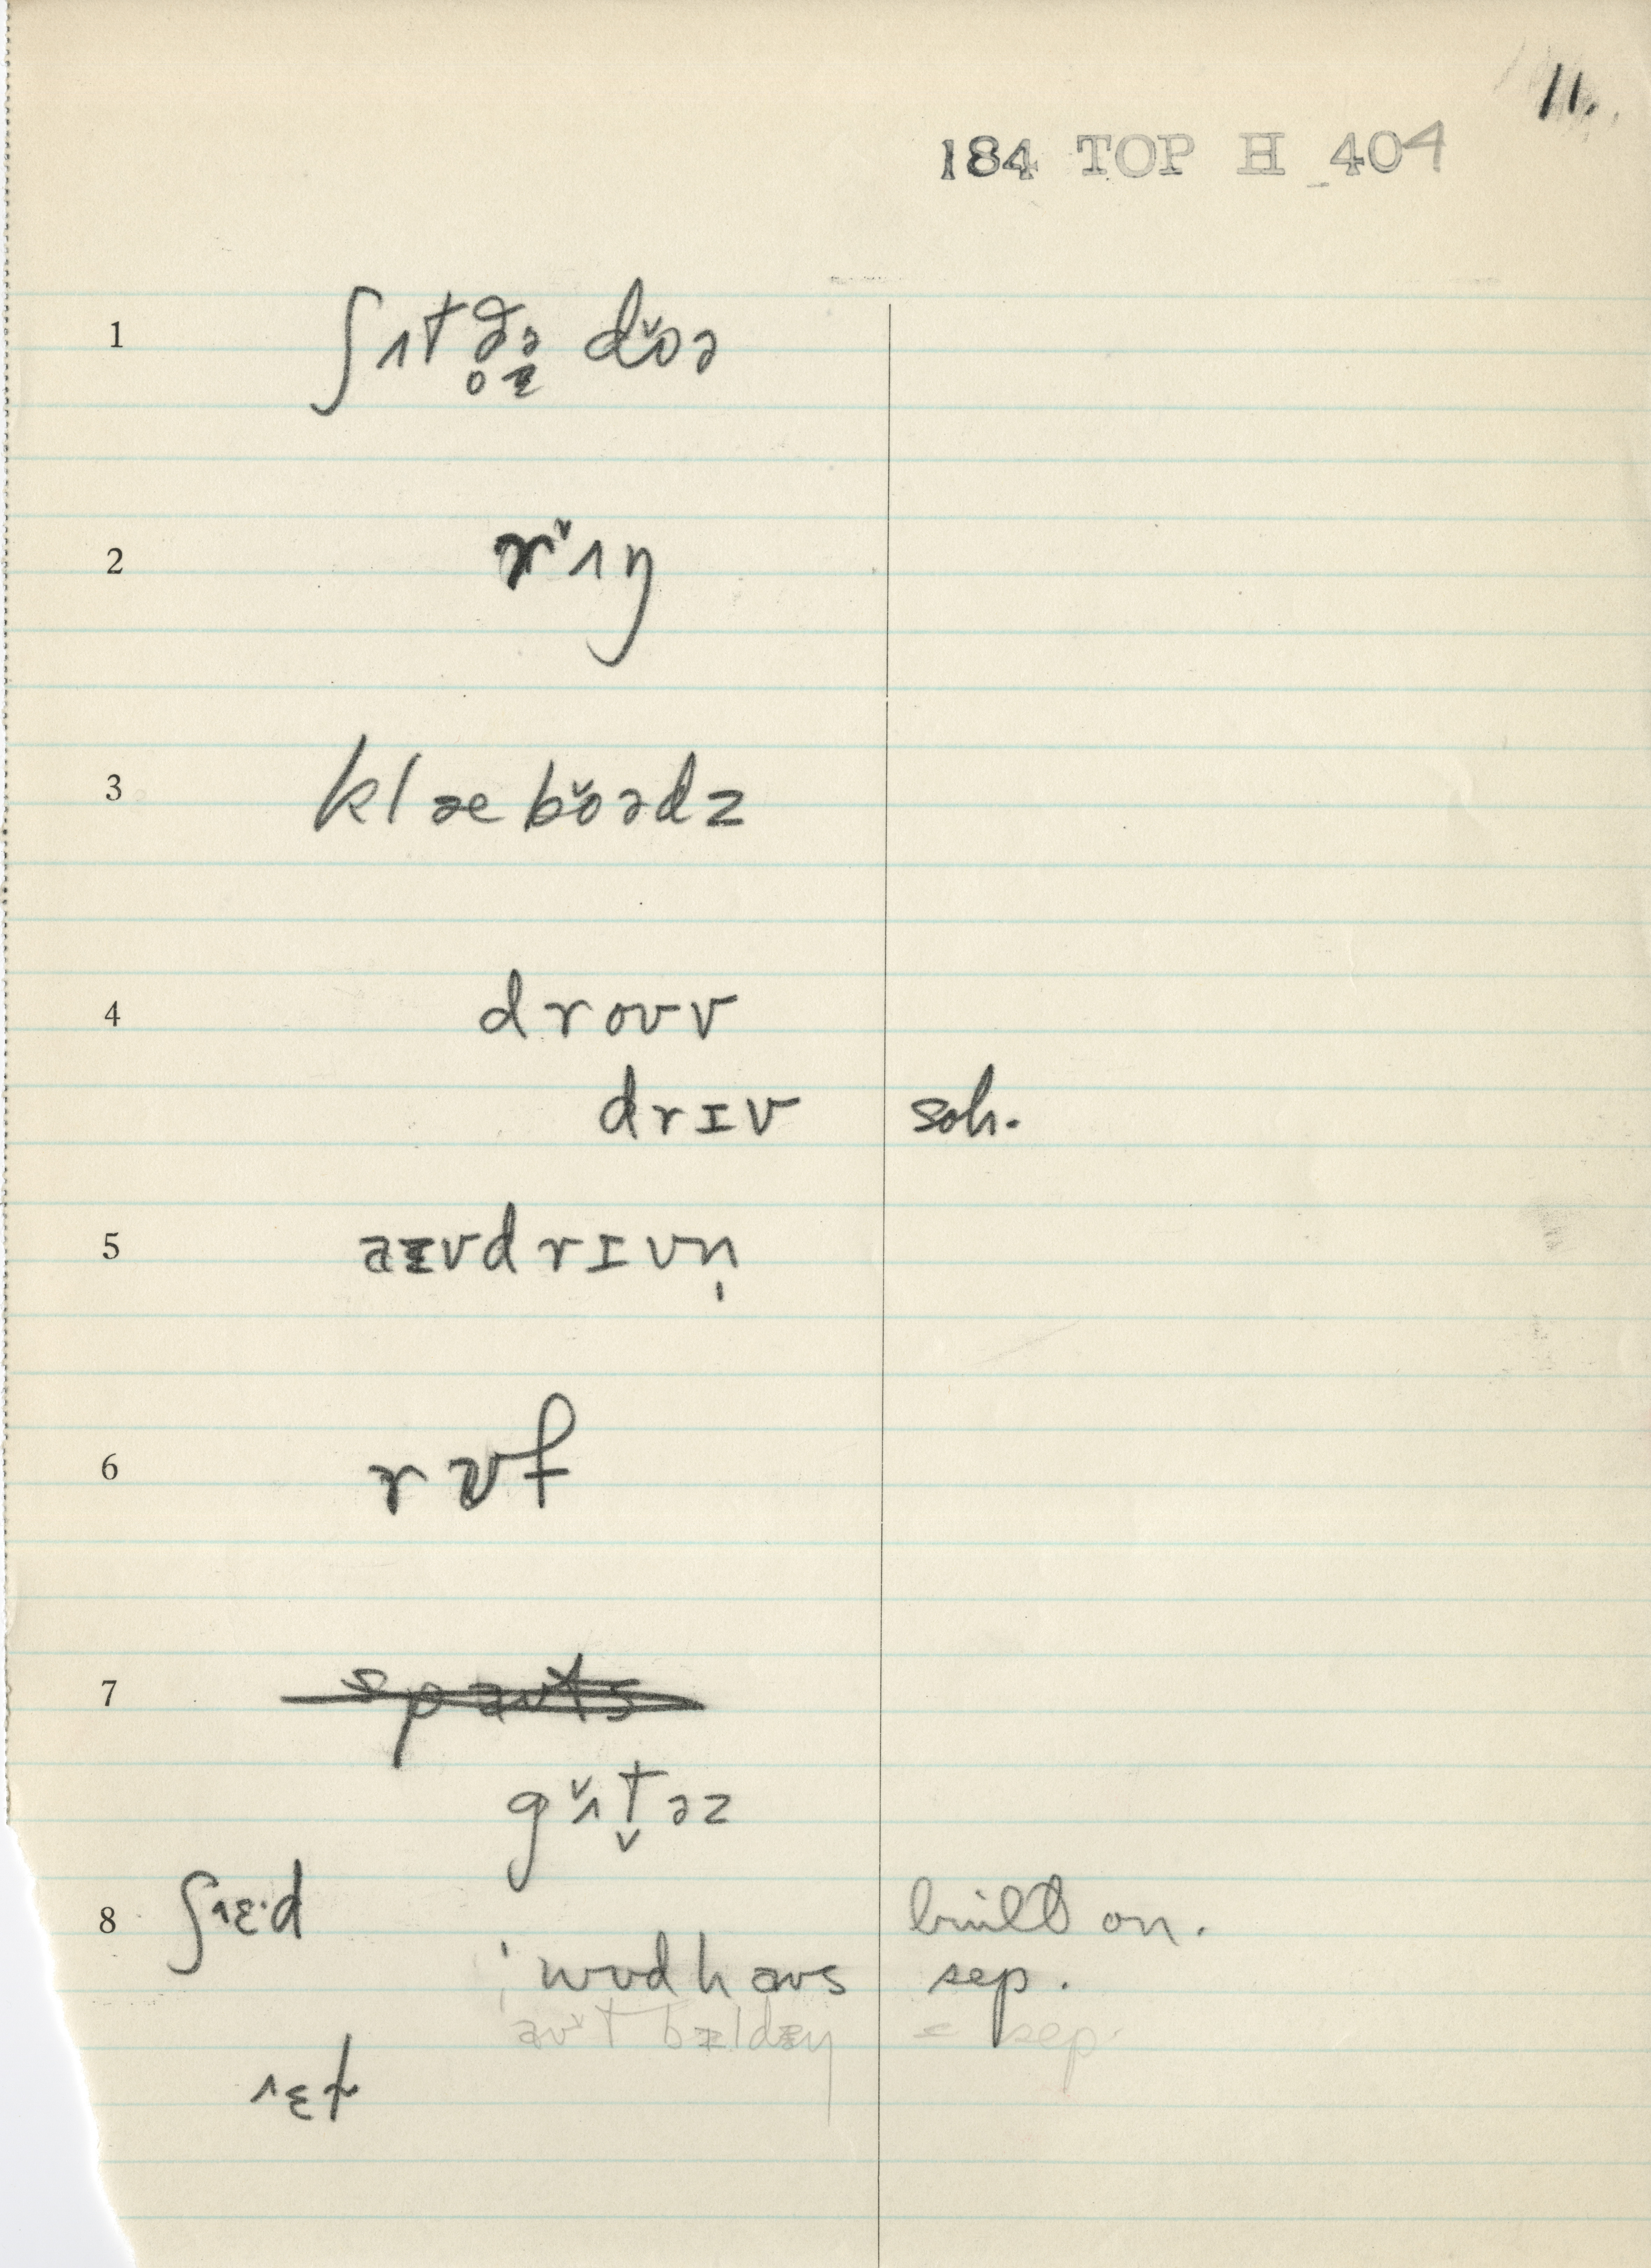 11.
184 TOP H 404
1 ʃɪtðə dɔ̌ə
2 rɪ̌ŋ
3 klæbɔ̌ədz
4 drouv
drɪv soh.
5 aɪvdrɪvn̩
6 rʊf
7 ~~spauts~~
gʌ̌t̬əz
8 ʃɛ·d built on.
ˈwudhaus sep.
aut bɪldɪŋ = sep.